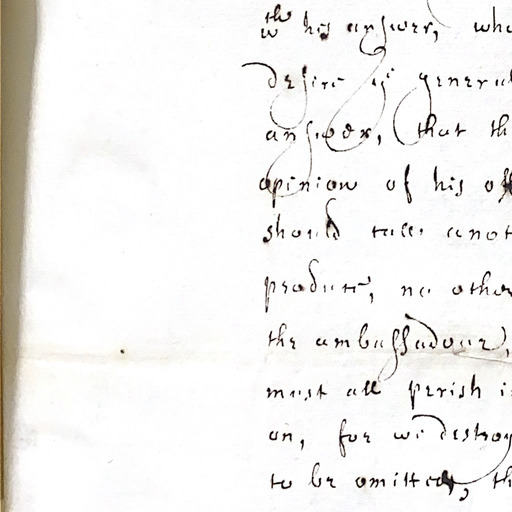 wth his answer, who
desire ye general
answer, that th
opinion of his off
should take anot
produce, no other
the ambassadour,
must all perish i
on, for we destroy
to be omitted, th